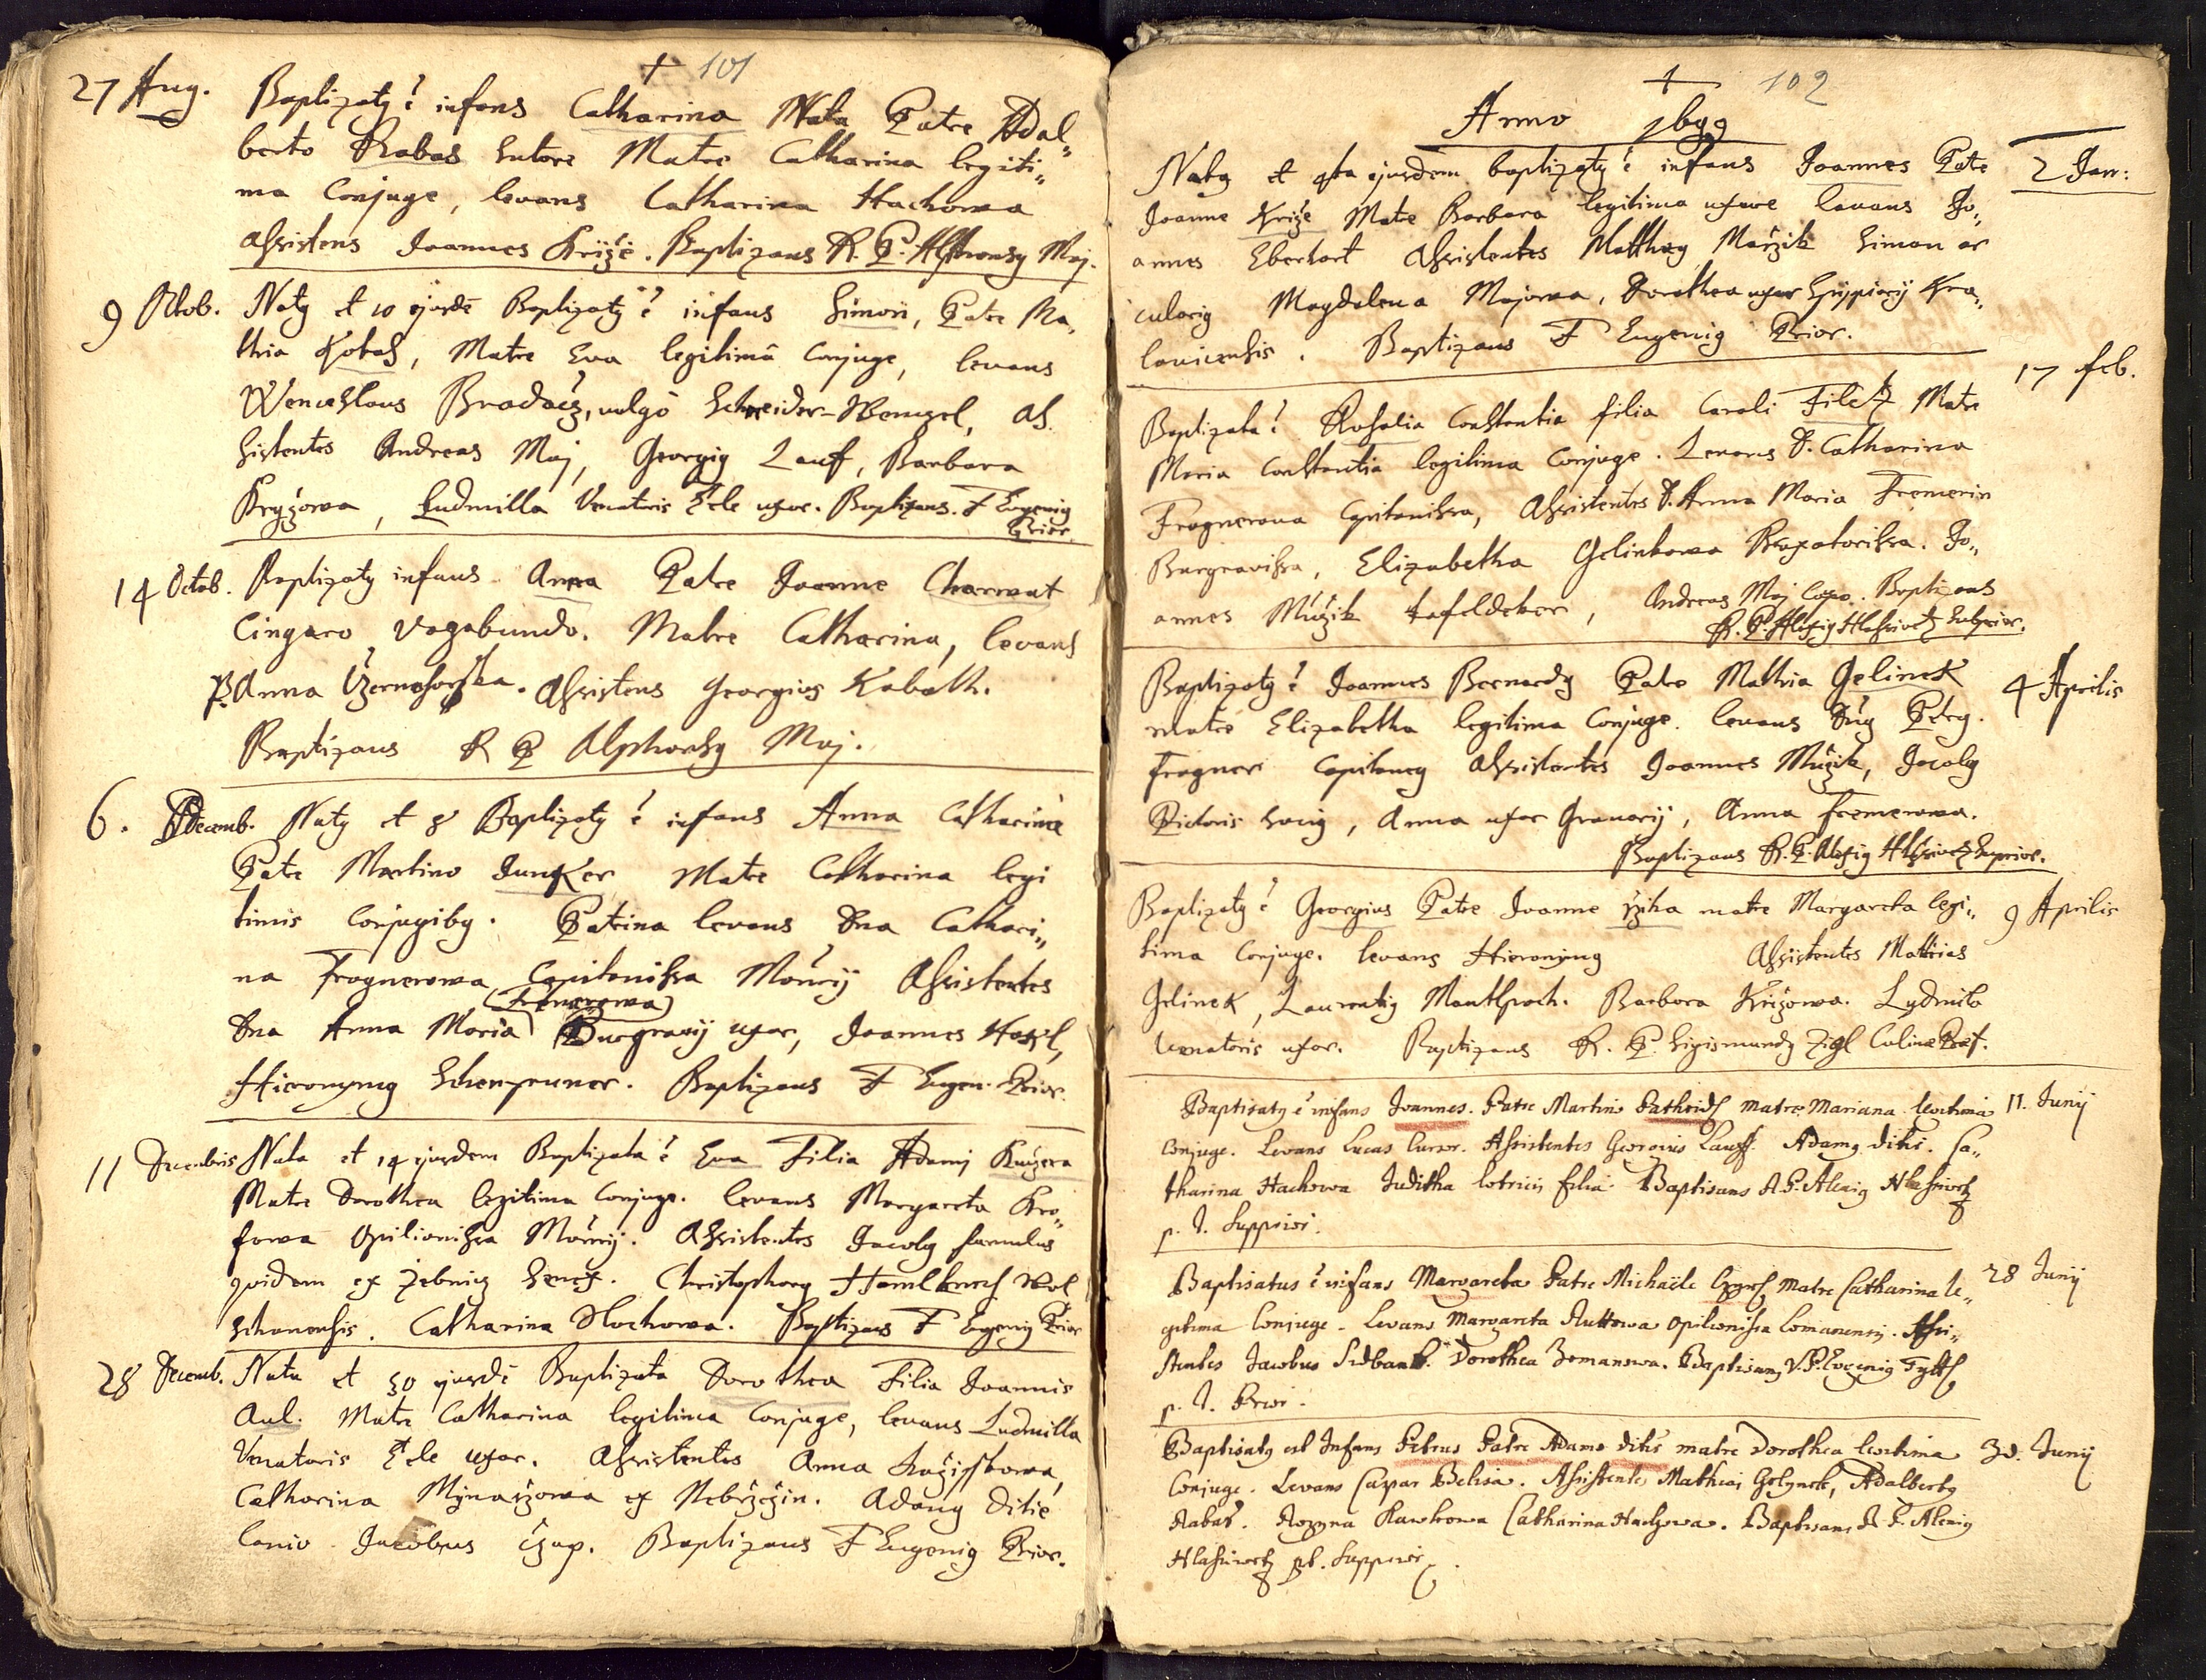 † 101
27 Aug. Baptizatus ẽ infans Catharina Nata Patre Adal„
berto Rabas Sutore Matre Catharina legiti„
ma Conjuge, levans Catharina Hachowa
Assistens Joannes Križe. Baptizans R. P. Alphonsus Maj.
9 Octob. Natus et 10 ejusdē Baptizatus ẽ infans Simon, Patre Ma„
thia Kobas, Matre Eva legitimâ Conjuge, levans
Wenceslaus Bradacz, vulgò Schneider-Wenczel, As.
sistentes Andreas Maj, Georgius Lauf, Barbara
Kryžowa, Ludmilla Venatoris uxor. Baptizans. F Eugenius
Prior.
14 Octob. Baptizatus infans Anna Patre Joanne Charwat
Cingaro vagabundo. Matre Catharina, levans
P. Anna Czernohorska. Assistens Georgius Kabath.
Baptizans R P Alphonsus Maj.
6. Decemb. Natus et 8 Baptizatus ẽ infans Anna Catharina
Patre Martino Junker Matre Catharina legi
timis Conjugibus. Patrina levans Dna Cathari„
na Frognerowa, Capitanissa Assistentes
(Fremerowa)
Dna Anna Maria Burgravij uxor, Joannes
Hieronymus Schenpruner. Baptizans F Eugen. Prior.
11 Decembris Nata et 14 ejusdem Baptizata ẽ Eva Filia Adami Kučera
Matre Dorothea legitima Conjuge. levans Margareta Kro„
fowa Opilionissa Assistentes Jacobus famulus
quidam ex Senex. Christophorus
Catharina Hochowa. Baptizans F Eugenius Prior
28 Decemb. Nata et 30 ejusdē Baptizata Dorothea Filia Joannis
Aul. Matre Catharina legitima Conjuge, levans Ludmilla
Venatoris uxor. Assistentes Anna
Catharina Mynaržowa ex Adamus Ditie
lanio Jacobus Czap. Baptizans F Eugenius Prior.
† 102
Anno 1699
Natus et 4ta ejusdem baptizatus ẽ infans Joannes Patre 2 Jan:
Joanne Križe Matre Barbara legitima uxore levans Jo„
annes Eberhart Assistentes Matthæus Simon ar
cularius Magdalena Majowa, Dorothea uxor Kra„
lovicensis. Baptizans F Eugenius Prior.
17 Feb.
Baptizata ẽ Rosalia Constantia filia Caroli Filek Matre
Maria Constantia legitima Conjuge. Levans D. Catharina
Frognerowa Capitanissa, Assistentes D. Anna Maria Fremerin
Burgravissa, Elizabetha Gelinkowa Braxatorissa. Jo„
annes Mužik tafeldeker, Andreas Maj Caupo. Baptizans
R. P. Alexius Hlassivetz Subprior.
Baptizatus ẽ Joannes Bernardus Patre Mathia Gelinek 4 Aprilis
matre Elizabetha legitima Conjuge. levans Dnus Petrus.
Frogner Capitaneus Assistentes Joannes Mužik, Jacobus
Pictoris Anna uxor Granarij, Anna Fremerowa.
Baptizans R. P. Alexius Hlassivetz Supprior.
Baptizatus ẽ Georgius Patre Joanne matre Margareta legi„ 9 Aprilis
tima Conjuge. levans Hieronymus Assistentes Mathias
Gelinek, Laurentius Barbora Križowa. Ludmila
Venatoris uxor. Baptizans R. P. Sigismundus Zigl Culinæ Præf.
Baptisatus ẽ infans Joannes. Patre Martino matre Mariana legitima 11. Junij
Conjuge. Levans Lucas Cursor. Assistentes Georgius Lauff. Adamus ditie. Ca„
tharina Hachowa Juditha lotricis filia. Baptisans R. P. Alexius Hlassivetz
p. t. Supprior.
Baptisatus ẽ infans Margareta Patre Michaële matre Catharina le„ 28 Junij
gitima Conjuge. Levans Margareta Opilionissa Assi„
stentes Jacobus Dorothea Zemanowa. Baptisans V. P. Eugenius
p. t. Prior.
Baptisatus est Infans Petrus Patre Adamo ditie matre Dorothea legitima 30. Junij
Conjuge. Levans Caspar Assistentes Mathias Gelynek, Adalbertus
Rabas. Catharina Hachowa. Baptisans R. P. Alexius
Hlassivetz pt. Supprior